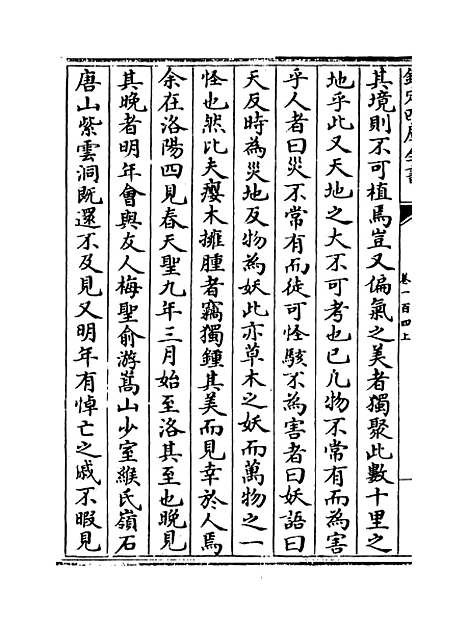 欽定四庫全書
卷一百四上
其境則不可植焉豈又偏氣之美者獨聚此數十里之
地乎此又天地之大不可考也已凡物不常有而為害
乎人者曰災不常有而徒可怪駭不為害者曰妖語曰
天反時為災地反物為妖此亦草木之妖而萬物之一
怪也然比夫癭木擁腫者竊獨鍾其美而見幸於人焉
余在洛陽四見春天聖九年三月始至洛其至也晚見
其晚者明年會與友人梅聖俞游嵩山少室緱氏嶺石
唐山紫雲洞既還不及見又明年有悼亡之戚不暇見